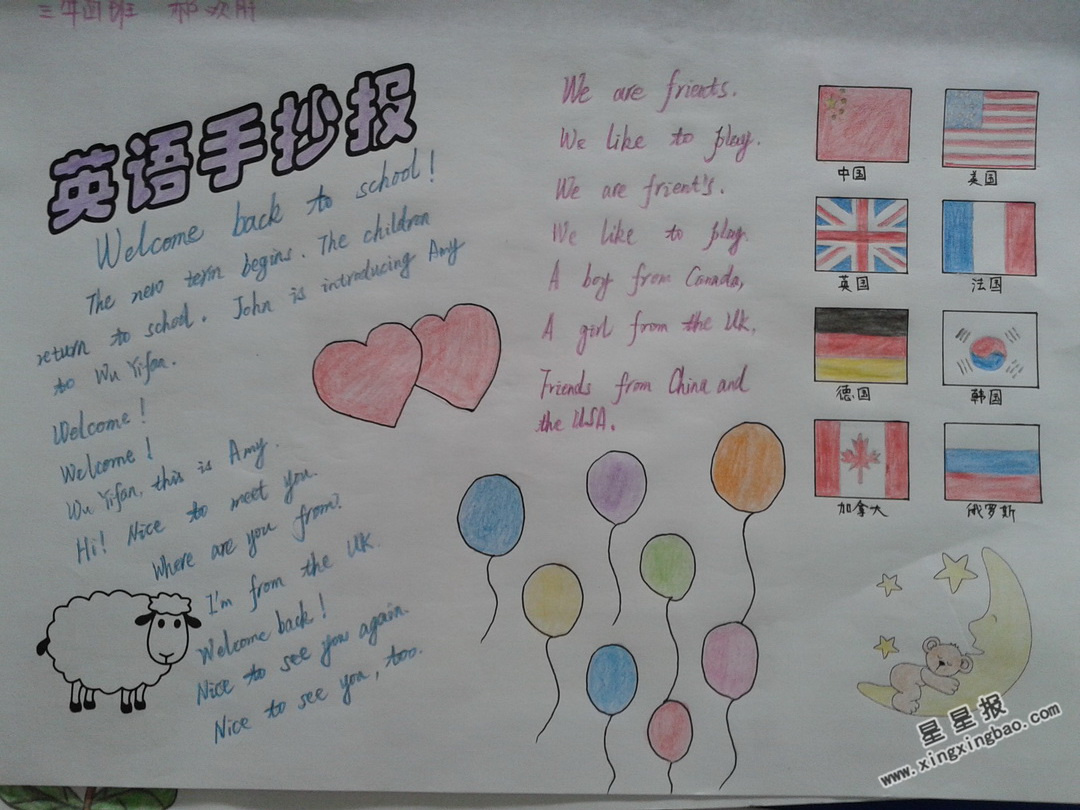 三年四班
英语手抄报
Welcome back to school!
The new term begins. The children
return to school. John is introducing Amy
to Wu Yifan.
Welcome!
Welcome!
Wu Yifan, this is Amy.
Hi! Nice to meet you.
Where are you from?
I'm from the UK.
Welcome back!
Nice to see you again.
Nice to see you, too.
We are friects.
We like to play.
We are frient's.
We like to play.
A boy from Canada,
A girl from the Uk.
Friends from China and
the USA.
中国
美国
英国
法国
德国
韩国
加拿大
俄罗斯
星星报
www.xingxingbao.com